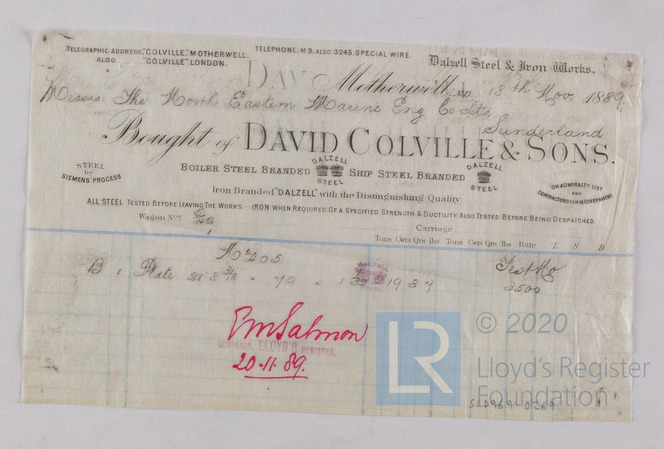 TELEGRAPHIC ADDRESS, "COLVILLE", MOTHERWELL.
ALSO "COLVILLE" LONDON.
TELEPHONE, M.B. ALSO 3245, SPECIAL WIRE.
Dalzell Steel & Iron Works.
Motherwell, 18th Nov. 1889
Messrs The North Eastern Marine Eng Co Ltd
Sunderland
Bought of DAVID COLVILLE & SONS.
STEEL
by
SIEMENS' PROCESS
BOILER STEEL BRANDED DALZELL STEEL SHIP STEEL BRANDED DALZELL STEEL
ON ADMIRALTY LIST
AND
CONTRACTORS TO H.M. GOVERNMENT.
Iron Branded "DALZELL" with the Distinguishing Quality
ALL STEEL TESTED BEFORE LEAVING THE WORKS.—IRON WHEN REQUIRED OF A SPECIFIED STRENGTH & DUCTILITY ALSO TESTED BEFORE BEING DESPATCHED.
Wagon Nos
Carriage
Tons Cwts Qrs lbs Tons Cwts Qrs lbs Rate L S D
405
Test No
B 1 Plate 21' 8 3/8 72 1937
3500
SURVEYOR, LLOYD'S REGISTER.
20.11.89.
LR
© 2020
Lloyd's Register
Foundation